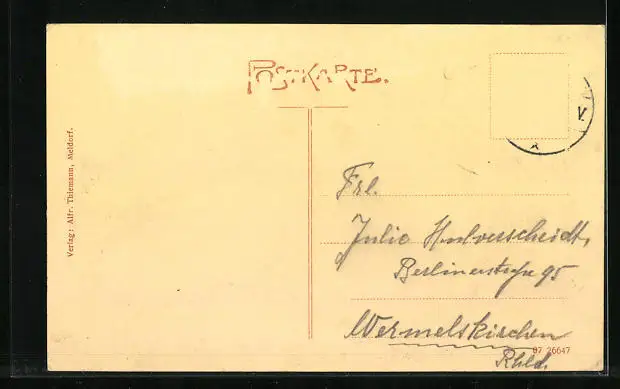 POSTKARTE.
Verlag: Alfr. Thiemann, Meldorf.
V.
Frl.
Julie Halverscheidt,
Berlinerstraße 95
Wermelskirchen
Rhld.
07 26647